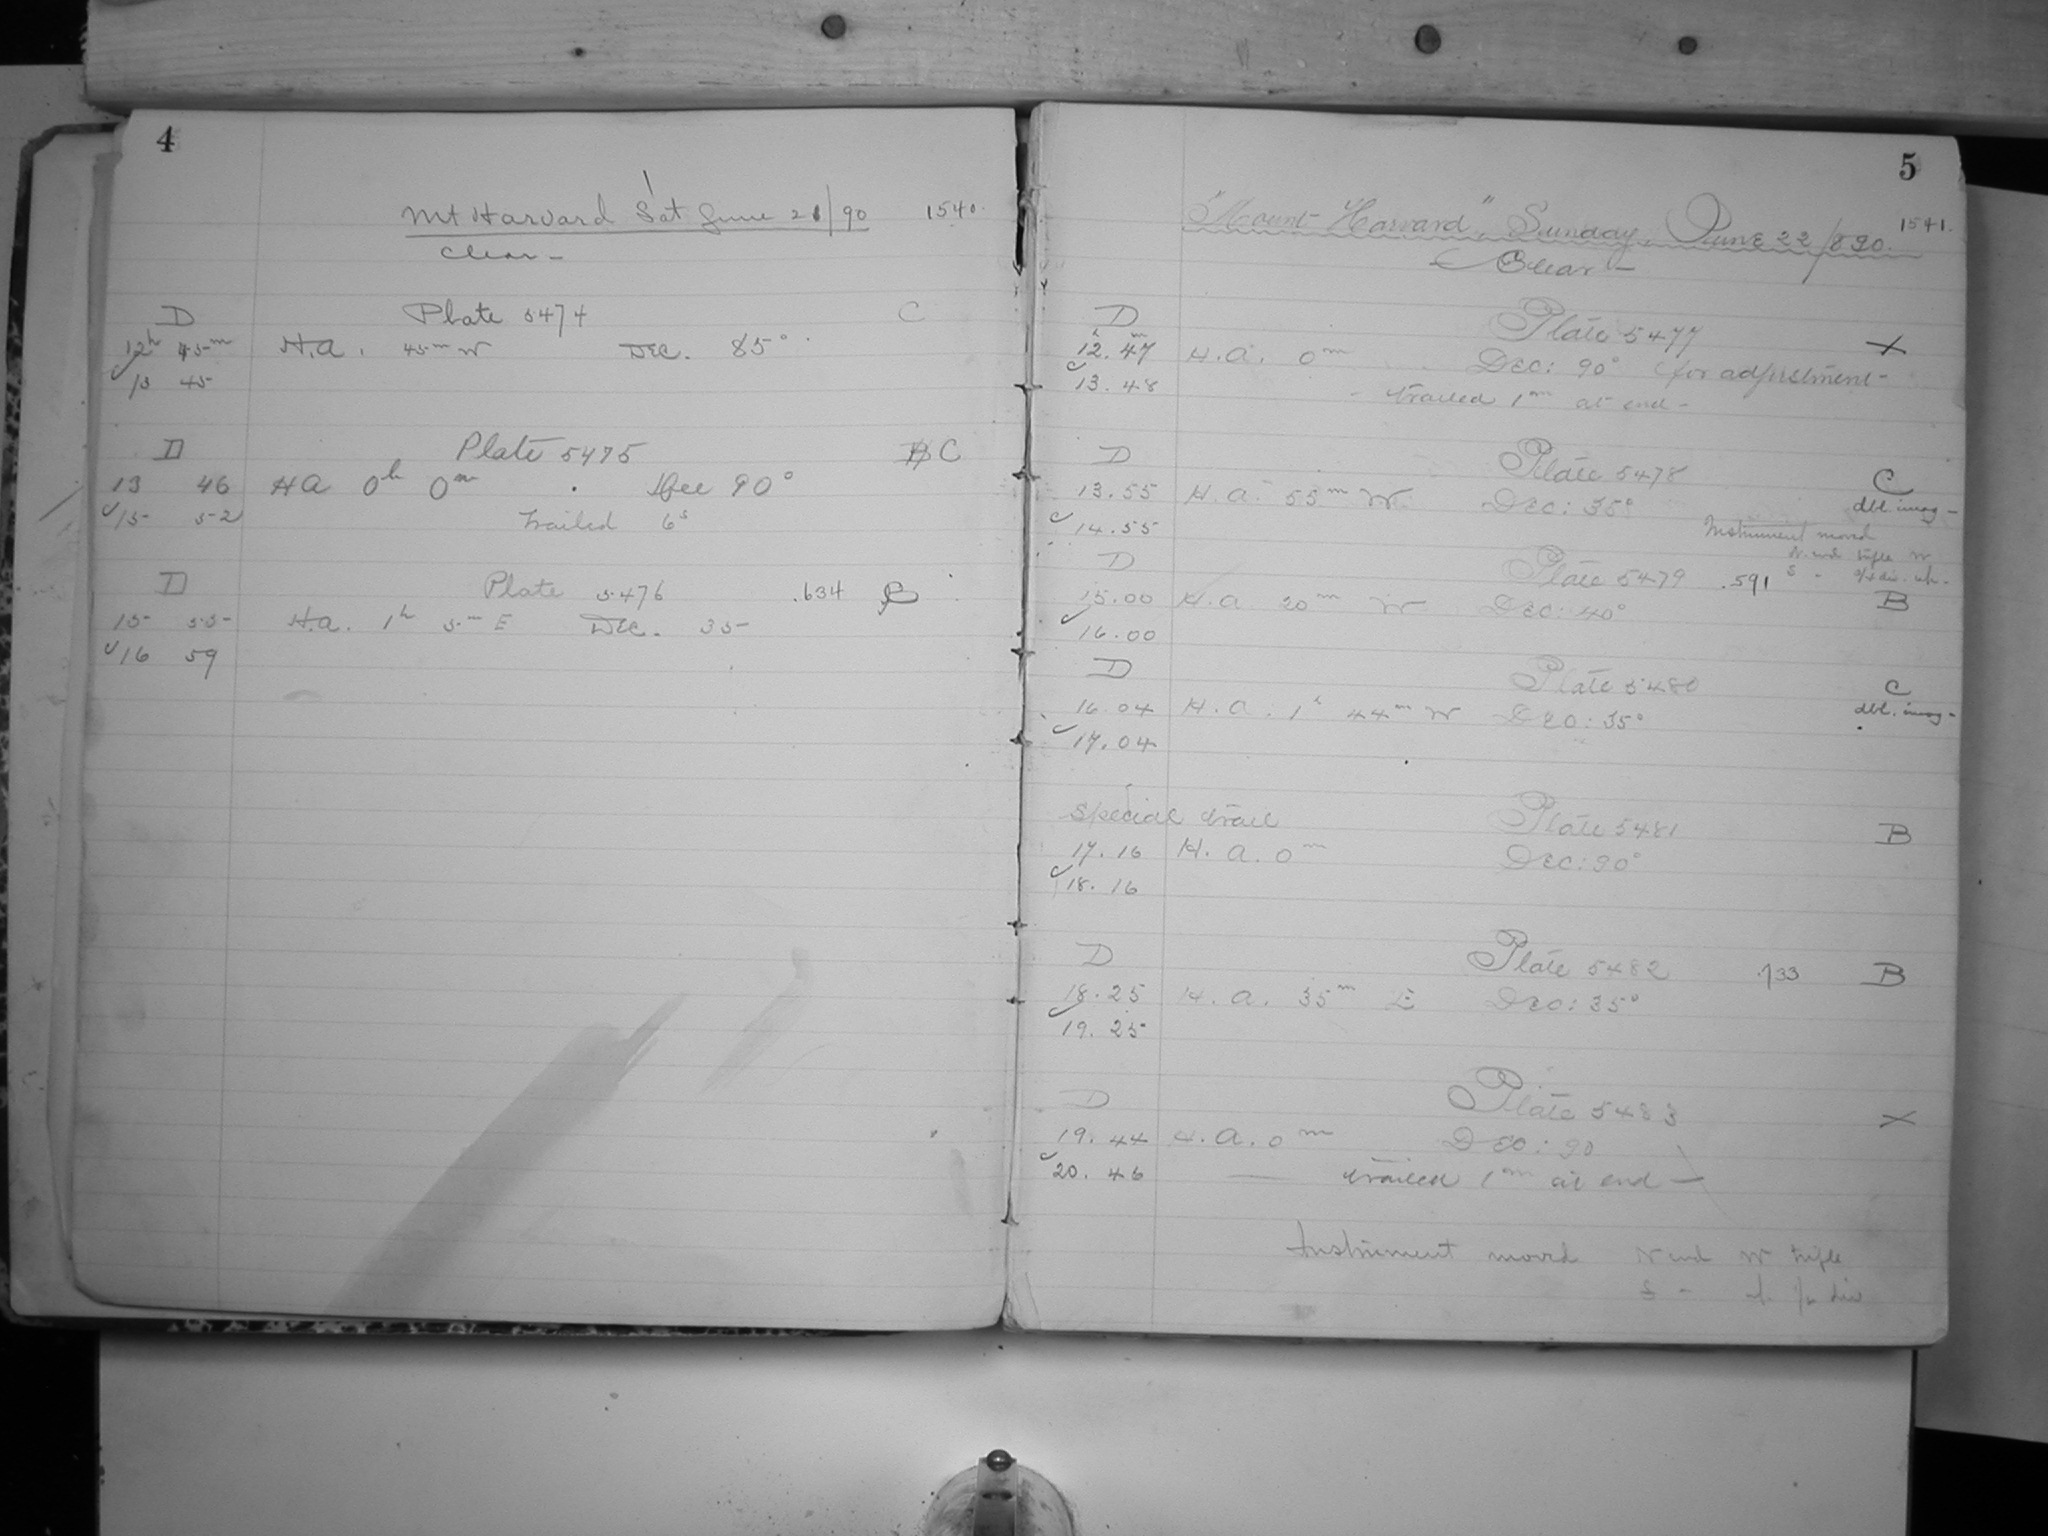 4
Mt Harvard Sat June 21/90 1540.
Clear -
D Plate 5474 C
12h 45m H.A. 45m W Dec. 85°
13 45
D Plate 5475 B C
13 46 HA 0h 0m Dec 90°
15 52 trailed 6s
D Plate 5476 .634 B
15 55 H.A. 1h 5m E Dec. 35
16 59
5
"Mount Harvard", Sunday, June 22/890. 1541.
Clear -
D Plate 5477 X
12h.47m H.A. 0m Dec: 90° (for adjustment -
13.48 - trailed 1m at end -
D Plate 5478 C
13.55 H.A. 55m W. Dec: 35° dbl. imag -
14.55 Instrument moved
N. end trifle W
D Plate 5479 .591
15.00 H.A. 20m W Dec: 40° B
16.00
D Plate 5480 C
16.04 H.A. 1h 44m W Dec: 35° dbl. imag -
17.04
Special trail Plate 5481 B
17.16 H.A. 0m Dec: 90°
18.16
D Plate 5482 .733 B
18.25 H.A. 35m E Dec: 35°
19.25
D Plate 5483 X
19.44 H.A. 0m Dec: 90
20.46 — trailed 1m at end —
Instrument moved N end W trifle
S -